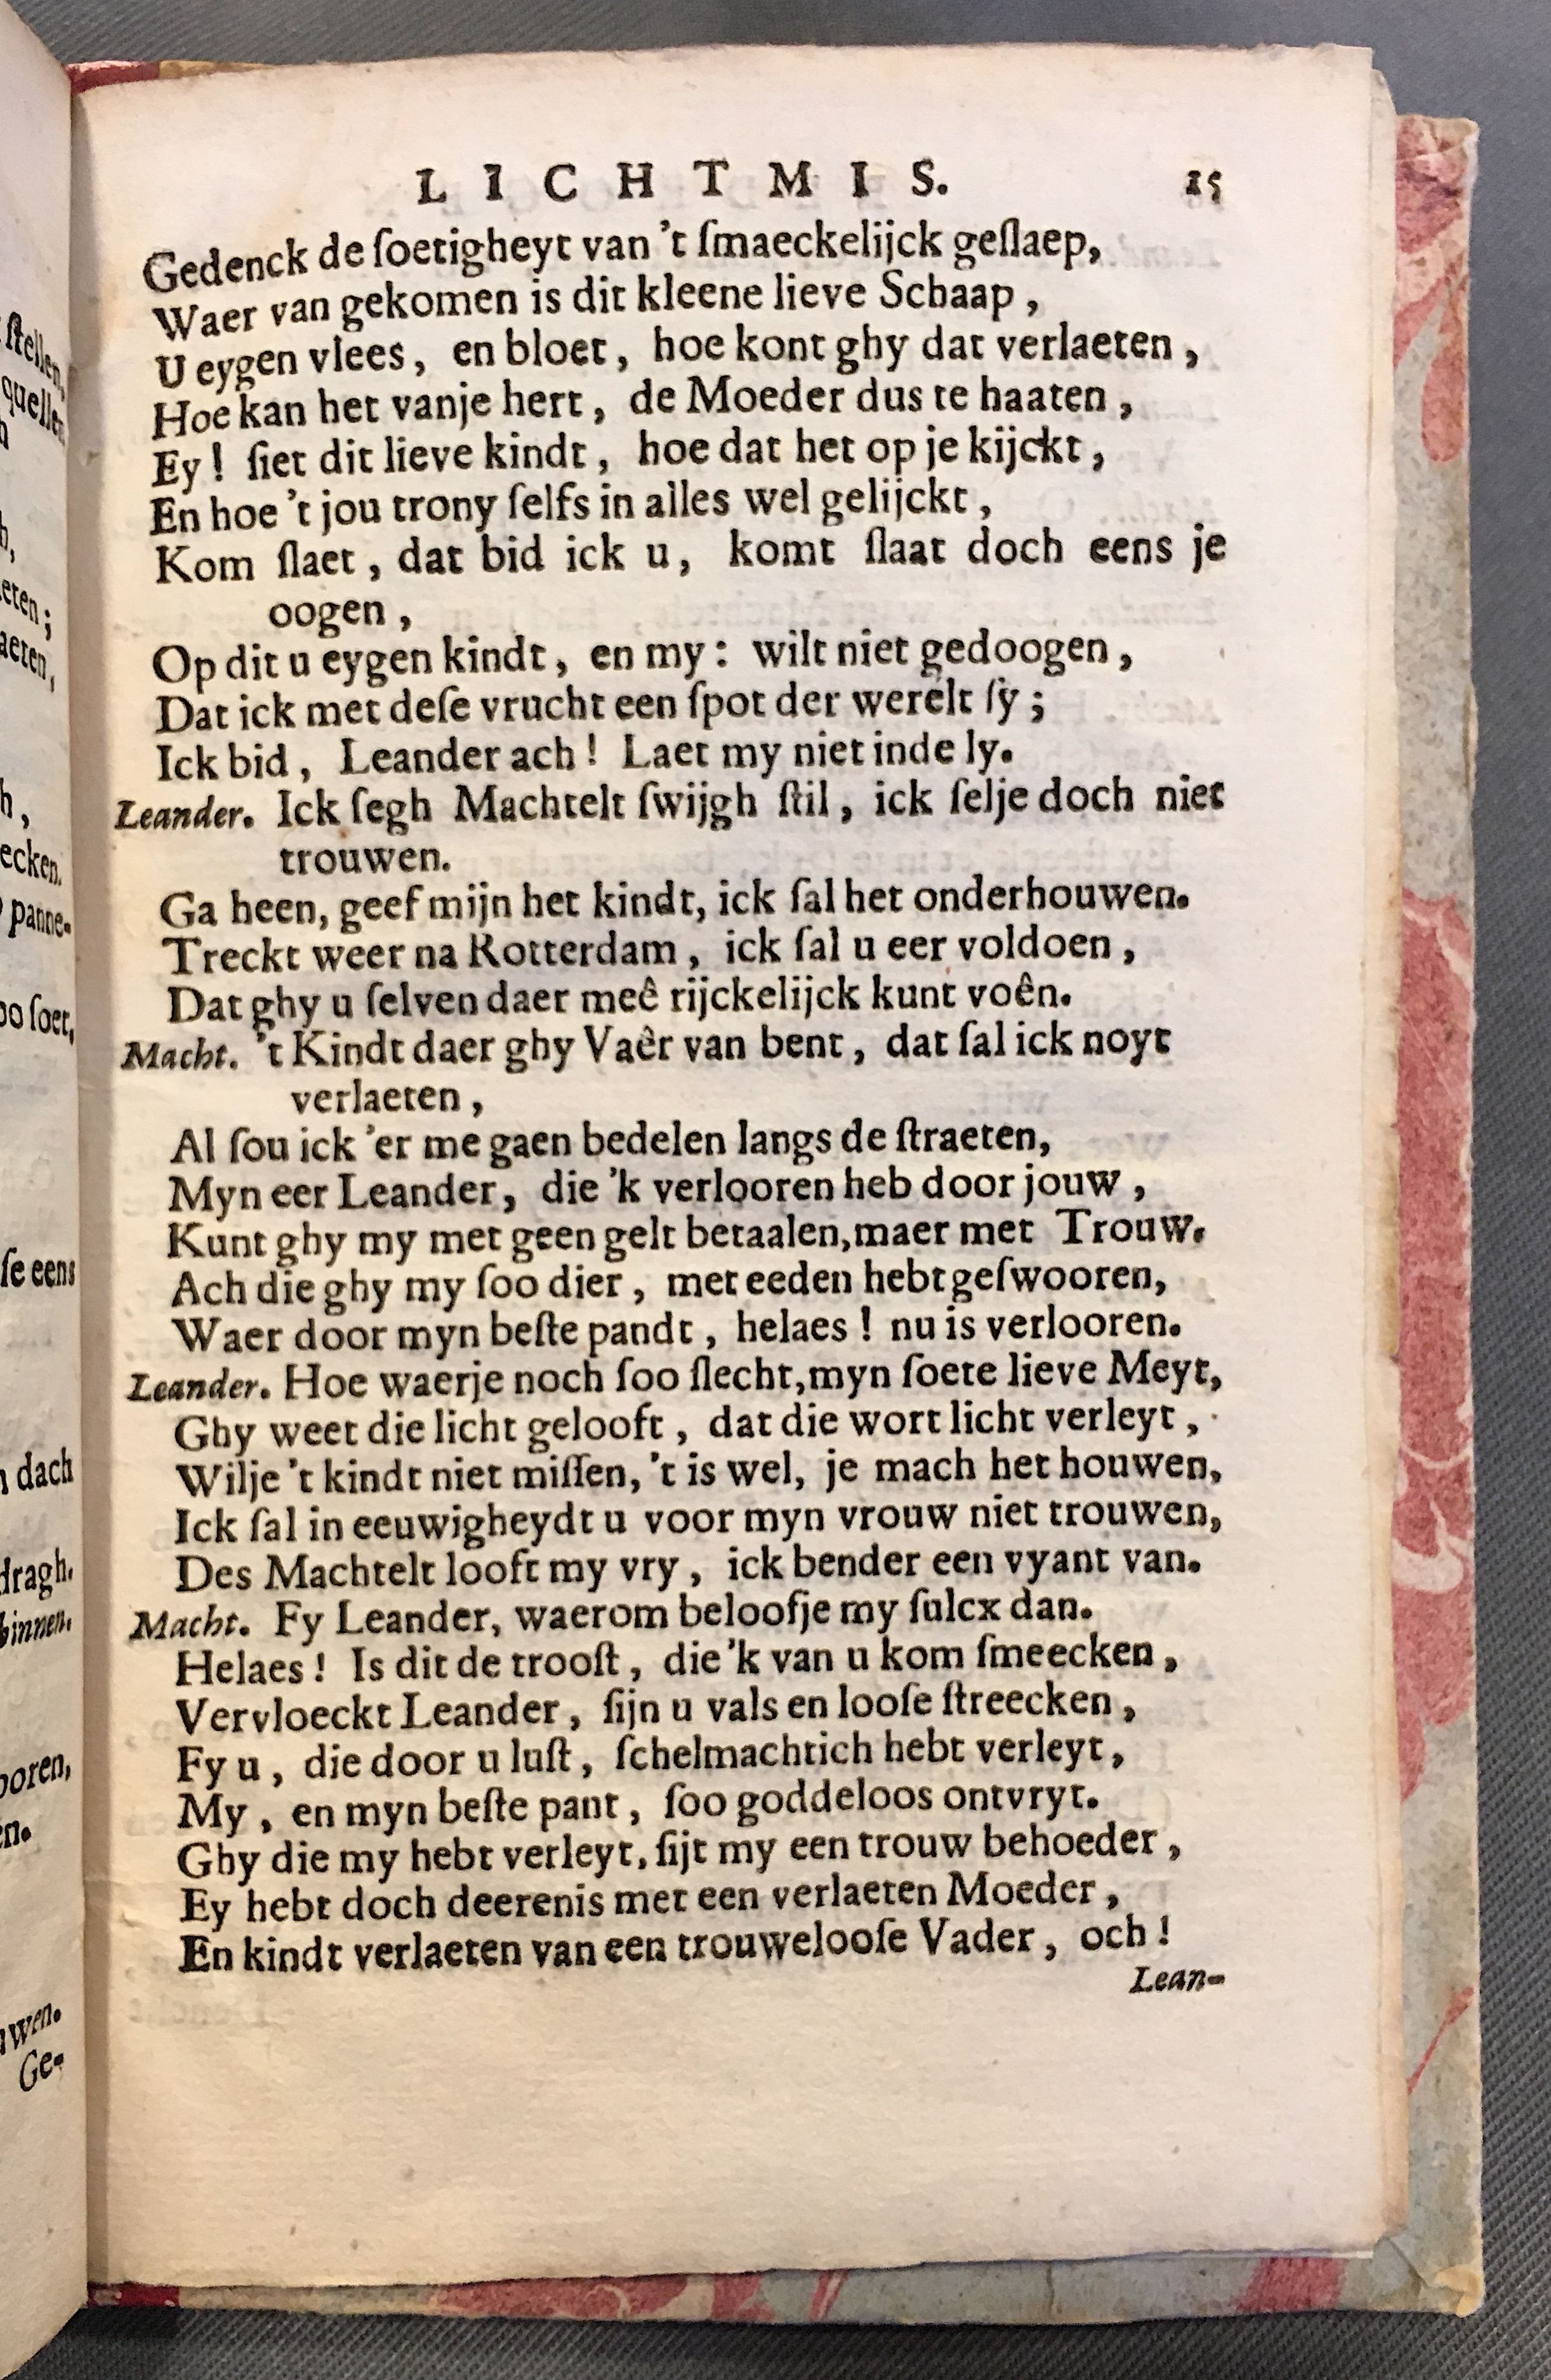 ſtellen,
quellen
h,
eten;
aeten,
h,
ecken.
panne-
oo ſoet,
ſe eens
dach
dragh.
binnen.
ooren,
en.
uwen.
Ge-
LICHTMIS. 15
Gedenck de ſoetigheyt van 't ſmaeckelijck geſlaep,
Waer van gekomen is dit kleene lieve Schaap,
U eygen vlees, en bloet, hoe kont ghy dat verlaeten,
Hoe kan het vanje hert, de Moeder dus te haaten,
Ey! ſiet dit lieve kindt, hoe dat het op je kijckt,
En hoe 't jou trony ſelfs in alles wel gelijckt,
Kom ſlaet, dat bid ick u, komt ſlaat doch eens je
oogen,
Op dit u eygen kindt, en my: wilt niet gedoogen,
Dat ick met deſe vrucht een ſpot der werelt ſy;
Ick bid, Leander ach! Laet my niet inde ly.
Leander. Ick ſegh Machtelt ſwijgh ſtil, ick ſelje doch niet
trouwen.
Ga heen, geef mijn het kindt, ick ſal het onderhouwen.
Treckt weer na Rotterdam, ick ſal u eer voldoen,
Dat ghy u ſelven daer meê rijckelijck kunt voên.
Macht. 't Kindt daer ghy Vaêr van bent, dat ſal ick noyt
verlaeten,
Al ſou ick 'er me gaen bedelen langs de ſtraeten,
Myn eer Leander, die 'k verlooren heb door jouw,
Kunt ghy my met geen gelt betaalen, maer met Trouw.
Ach die ghy my ſoo dier, met eeden hebt geſwooren,
Waer door myn beſte pandt, helaes! nu is verlooren.
Leander. Hoe waerje noch ſoo ſlecht, myn ſoete lieve Meyt,
Ghy weet die licht gelooft, dat die wort licht verleyt,
Wilje 't kindt niet miſſen, 't is wel, je mach het houwen,
Ick ſal in eeuwigheydt u voor myn vrouw niet trouwen,
Des Machtelt looft my vry, ick bender een vyant van.
Macht. Fy Leander, waerom beloofje my ſulcx dan.
Helaes! Is dit de trooſt, die 'k van u kom ſmeecken,
Vervloeckt Leander, ſijn u vals en looſe ſtreecken,
Fy u, die door u luſt, ſchelmachtich hebt verleyt,
My, en myn beſte pant, ſoo goddeloos ontvryt.
Ghy die my hebt verleyt, ſijt my een trouw behoeder,
Ey hebt doch deerenis met een verlaeten Moeder,
En kindt verlaeten van een trouwelooſe Vader, och!
Lean-